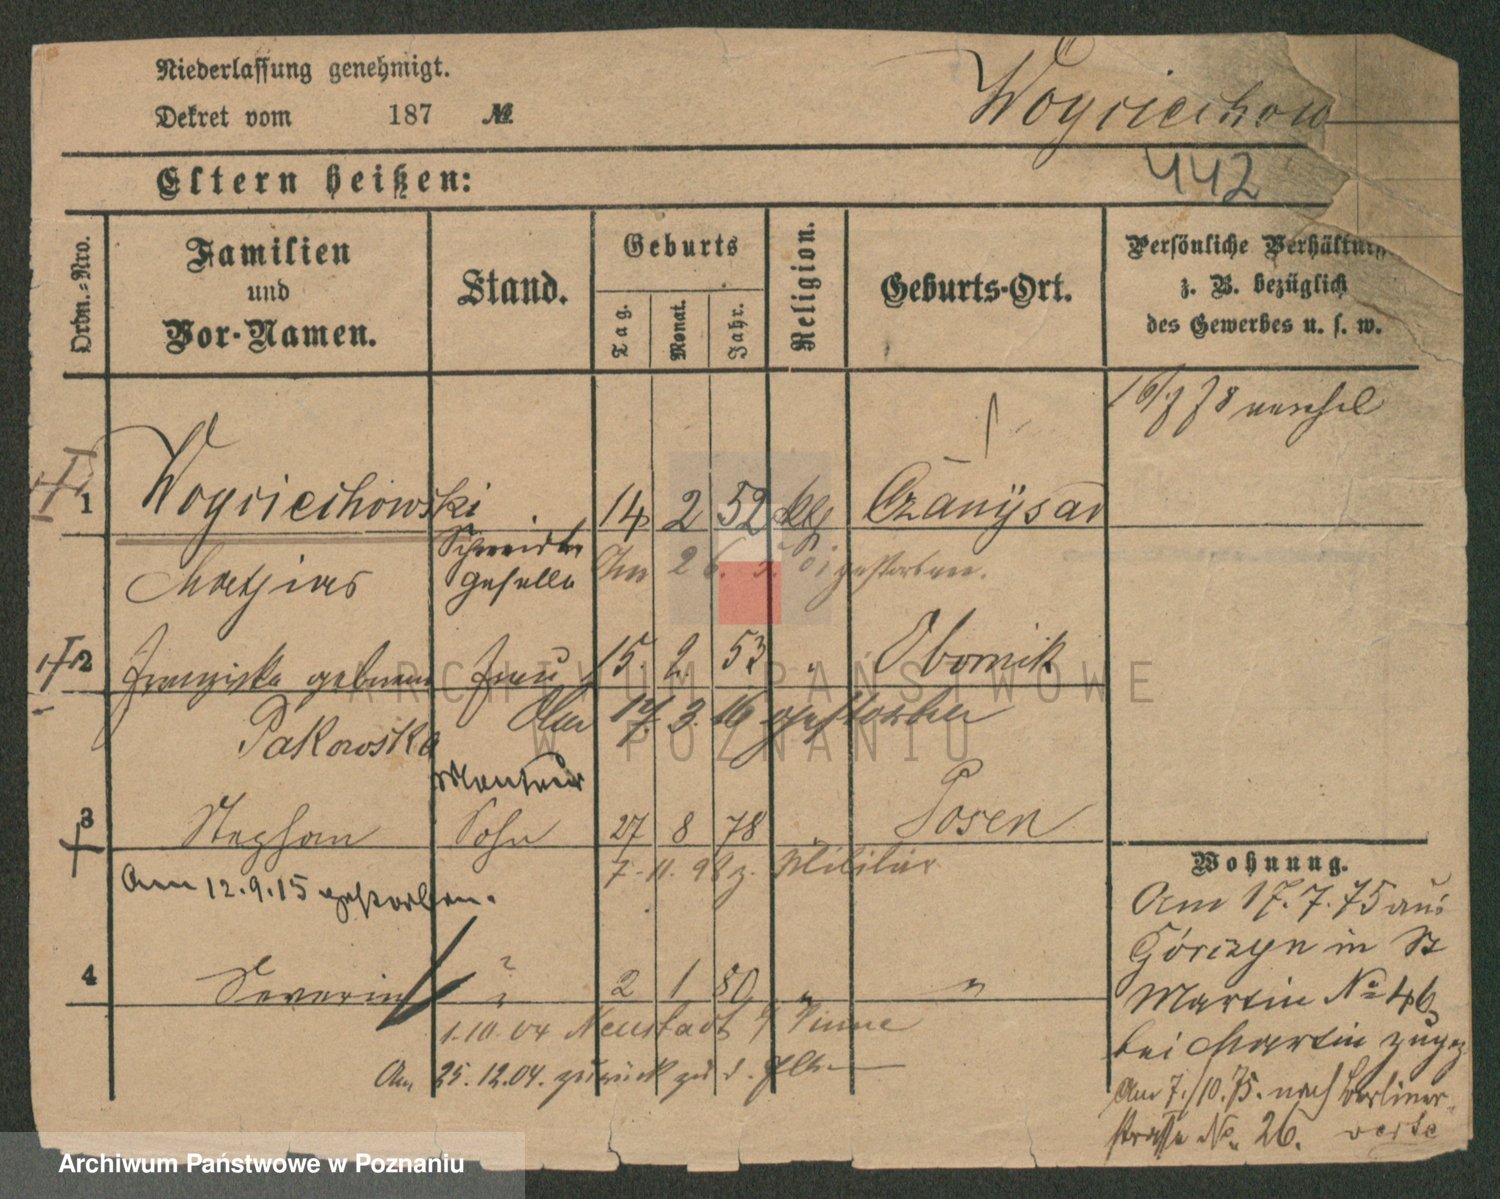 Niederlassung genehmigt.
Dekret vom 187 №
Woyciechow
442
Eltern heißen:
Ordn.-Nro.
Familien
und
Vor-Namen.
Stand.
Geburts
Tag.
Monat.
Jahr.
Religion.
Geburts-Ort.
Persönliche Verhältn
z. B. bezüglich
des Gewerbes u. s. w.
1 Woyciechowski 14 2 52
Schneider
geselle
Mathias
Am 26. gestorben.
2 Franziska geborene Frau 15. 2. 53 " Obornik
Pakowska
Am 17. 3. 16 gestorben
Monteur
3 Stephan Sohn 27 8 78 Posen
7. 11. 98 z. Militär
Am 12.9.15 gestorben.
4 Severin " 2 1 80 " "
1.10.04 Neustadt b/ Pinne
Am 25.12.04. zurück zu d. Elt.
Wohnung.
Am 17.7.75 aus
Górczyn in St
Martin № 46
bei Martin zugez
Am 7./10.75. nach Berliner-
straße No. 26. verte
ARCHIWUM PAŃSTWOWE
W POZNANIU
Archiwum Państwowe w Poznaniu